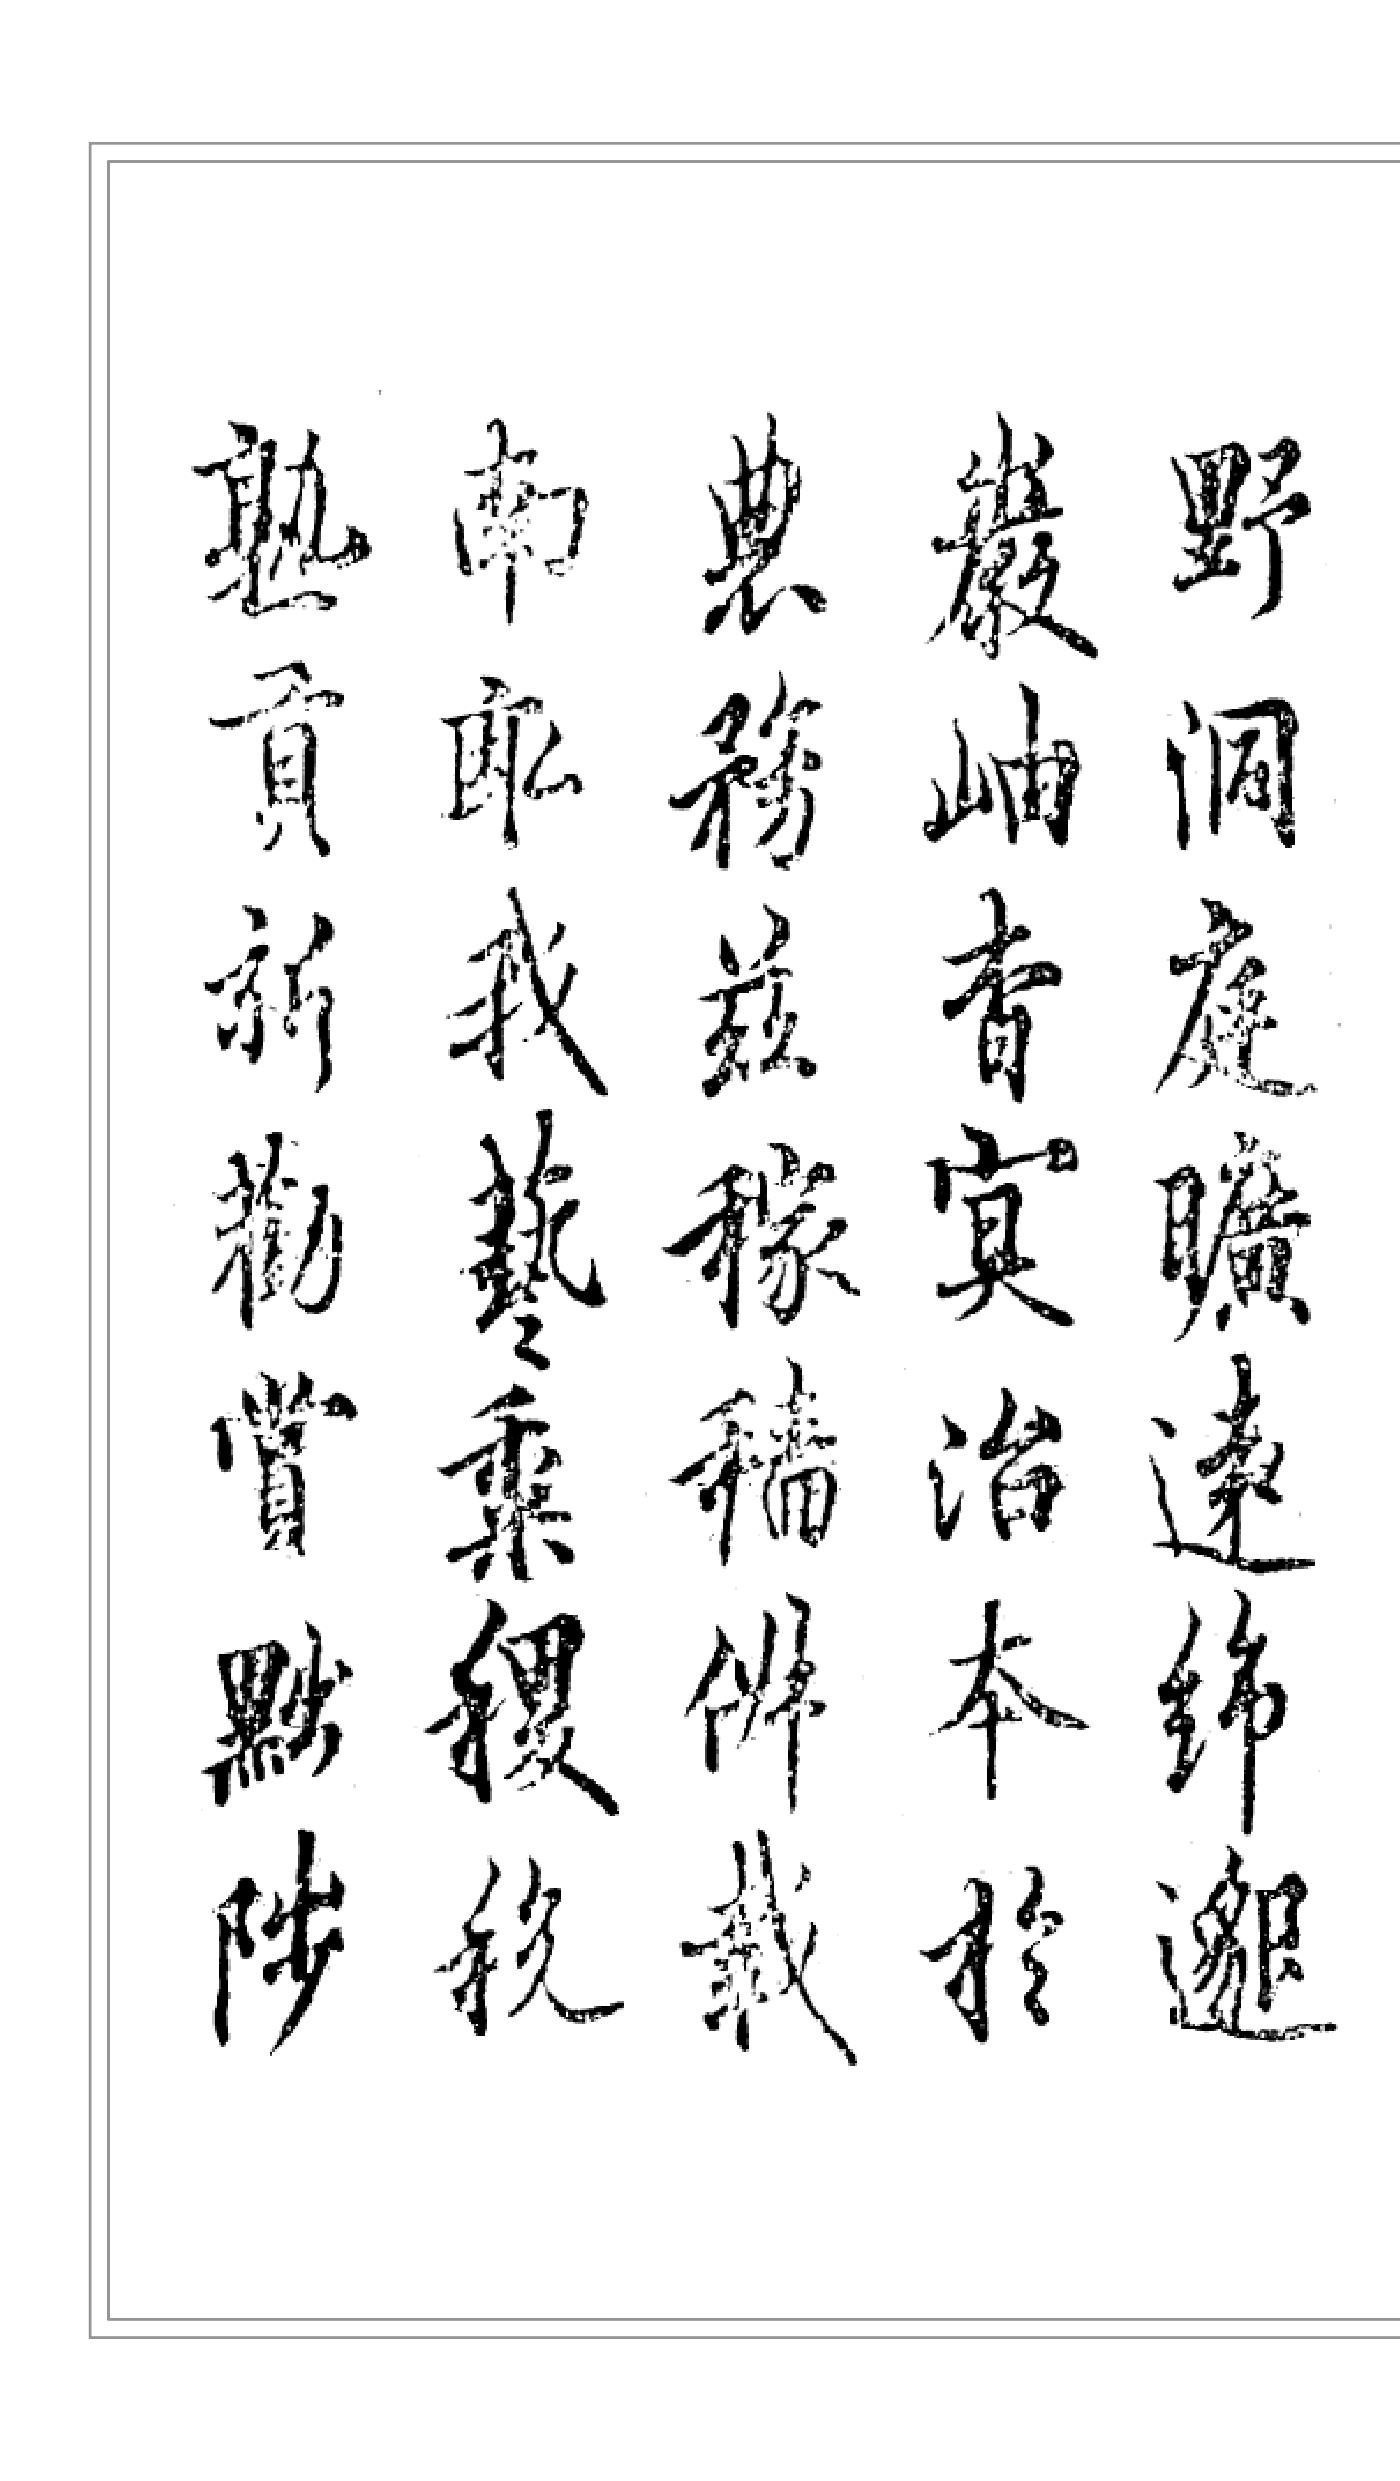 野洞庭曠遠綿邈
巖岫杳冥治本於
農務茲稼穡俶載
南畝我藝黍稷稅
熟貢新勸賞黜陟